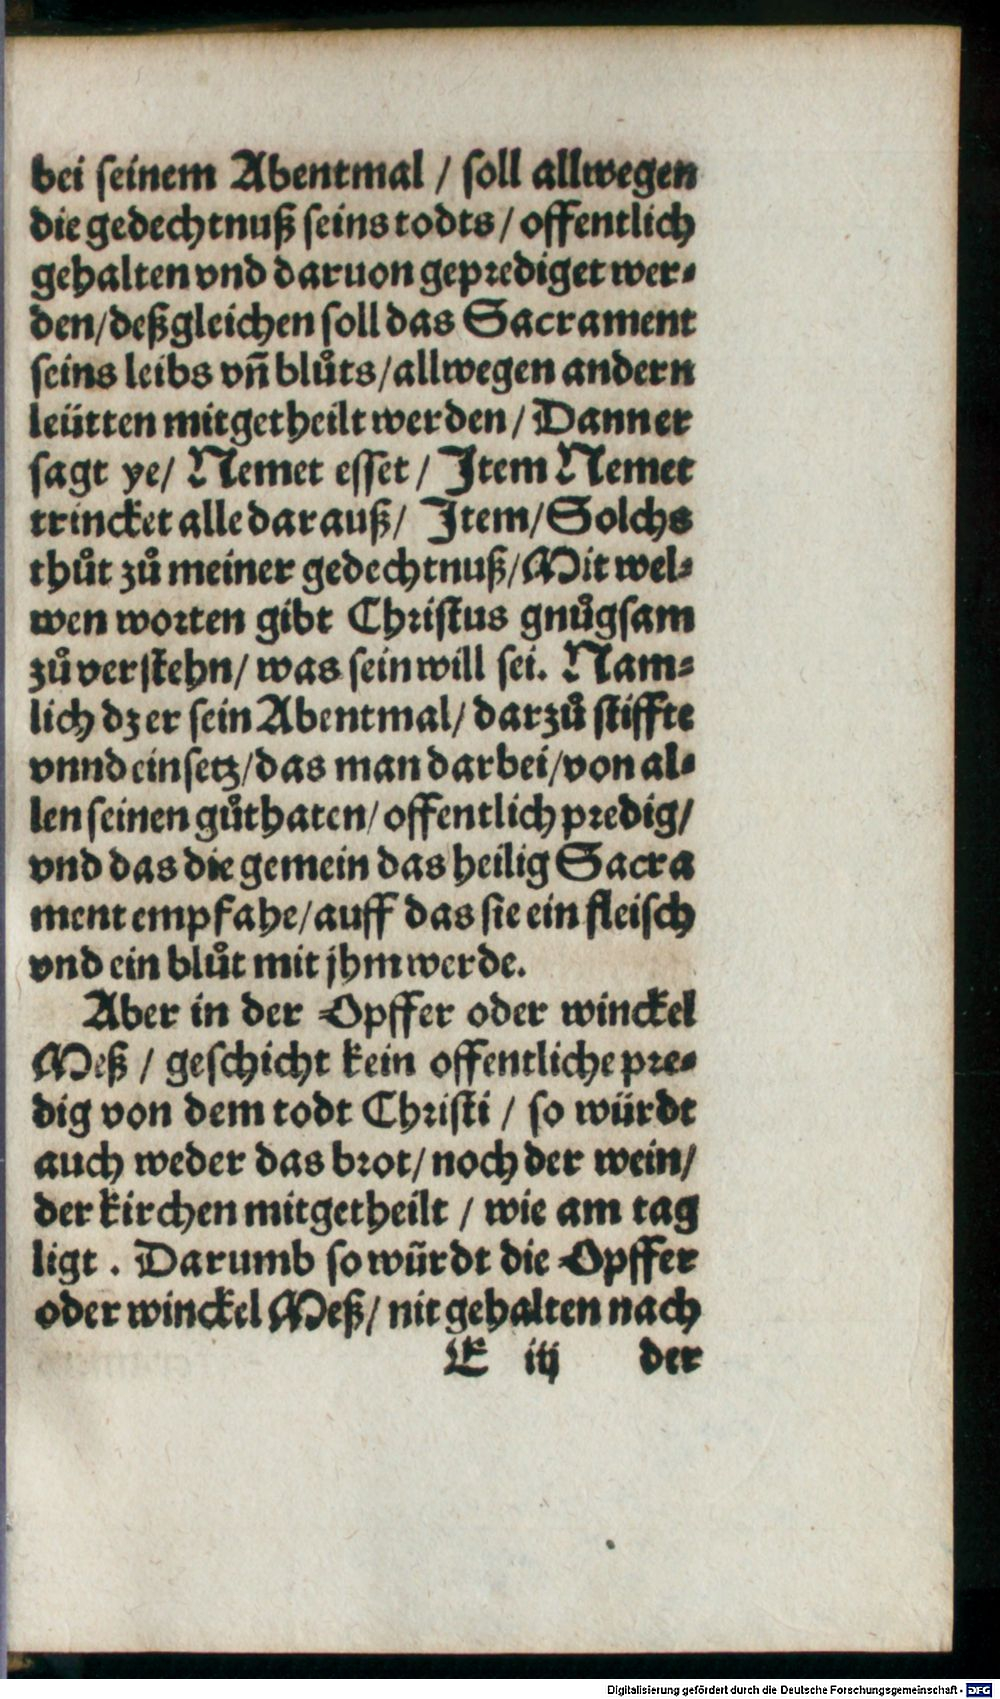 bei seinem Abentmal / soll allwegen
die gedechtnuß seins todts / offentlich
gehalten vnd daruon geprediget wer⸗
den / deßgleichen soll das Sacrament
seins leibs vñ blůts / allwegen andern
leütten mitgetheilt werden / Dann er
sagt ye / Nemet esset / Item Nemet
trincket alle darauß / Item / Solchs
thůt zů meiner gedechtnuß / Mit wel⸗
wen worten gibt Christus gnůgsam
zů verstehn / was sein will sei. Nam⸗
lich dz er sein Abentmal / darzů stiffte
vnnd einsetz / das man darbei / von al⸗
len seinen gůthaten / offentlich predig /
vnd das die gemein das heilig Sacra
ment empfahe / auff das sie ein fleisch
vnd ein blůt mit jhm werde.
Aber in der Opffer oder winckel
Meß / geschicht kein offentliche pre⸗
dig von dem todt Christi / so würdt
auch weder das brot / noch der wein /
der kirchen mitgetheilt / wie am tag
ligt. Darumb so würdt die Opffer
oder winckel Meß / nit gehalten nach
E iij der
Digitalisierung gefördert durch die Deutsche Forschungsgemeinschaft - DFG